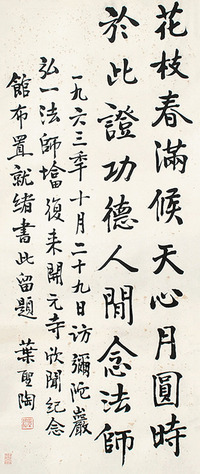 花枝春滿候天心月圓時
於此證功德人間念法師
一九六三年十月二十九日访彌陀巖
弘一法師墖復来開元寺欣聞纪念
館布置就绪書此留題
葉聖陶